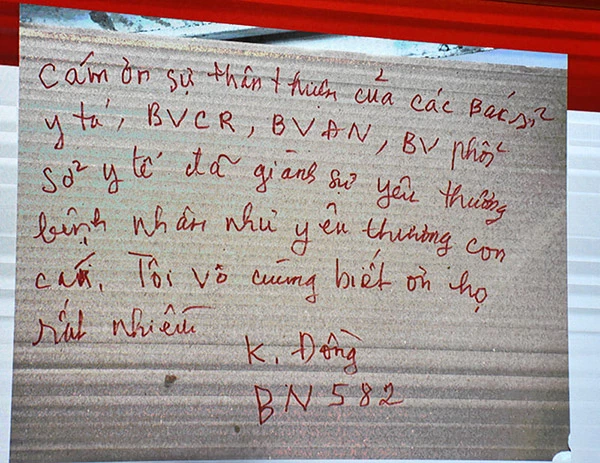 Cám ơn sự thân thiện của các Bác sỉ
y tá, BVCR, BVĐN, BV phổi
Sở y tế đã giành sự yêu thương
bệnh nhân như yêu thương con
cái. Tôi vô cùng biết ơn họ
rất nhiều
K. Đông
BN 582